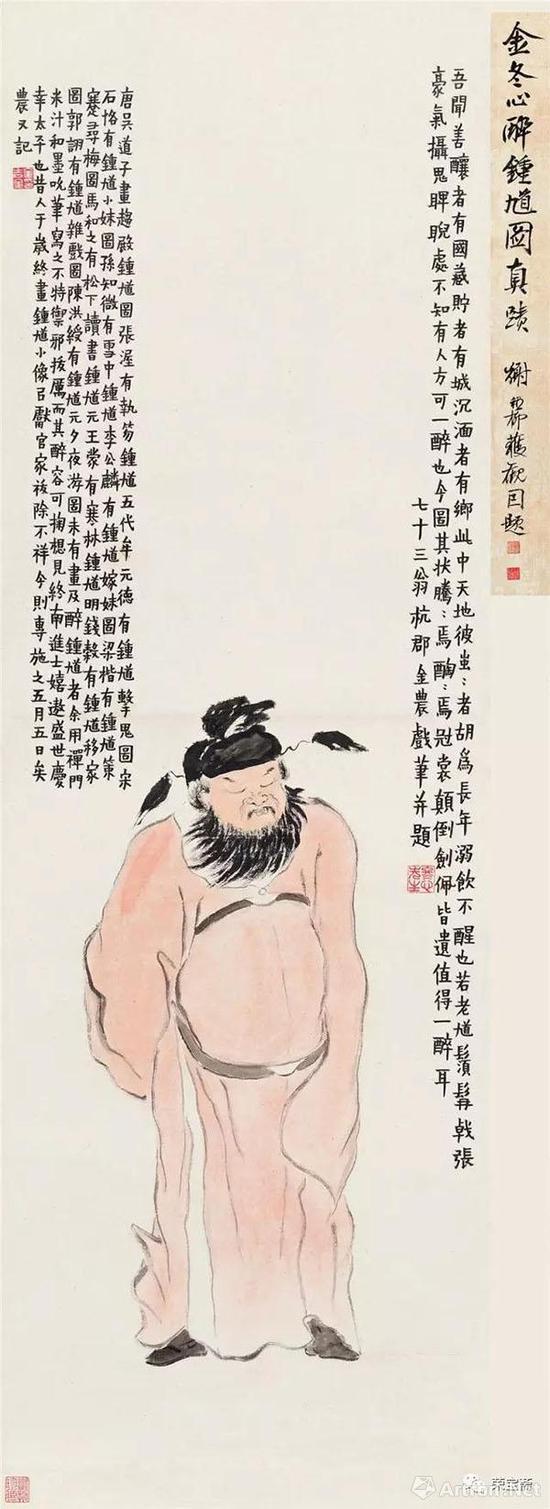 金冬心醉鍾馗圖真蹟
獲觀因題
吾聞善釀者有國藏貯者有城沉湎者有鄉此中天地彼蚩:者胡為長年溺飲不醒也若老馗鬚髯戟張
豪氣攝鬼睥睨處不知有人方可一醉也今圖其狀騰:焉酶:焉冠裳顛倒劍佩皆遺值得一醉耳
七十三翁杭郡金農戲筆并題
唐吳道子畫趨殿鍾馗圖張渥有執笏鍾馗五代牟元德有鍾馗擊鬼圖宋
石恪有鍾馗小妹圖孫知微有雪中鍾馗李公麟有鍾馗嫁妹圖梁楷有鍾馗策
蹇尋梅圖馬和之有松下讀書鍾馗元王蒙有寒林鍾馗明錢榖有鍾馗移家
圖郭詡有鍾馗雜戲圖陳洪綬有鍾馗元夕夜游圖未有畫及醉鍾馗者余用禪門
米汁和墨吮筆寫之不特禦邪拔厲而其醉容可掬想見終南進士嬉遨盛世慶
幸太平也昔人于歲終畫鍾馗小像以獻官家祓除不祥今則專施之五月五日矣
農又記
荣宝斋
Artron.Net